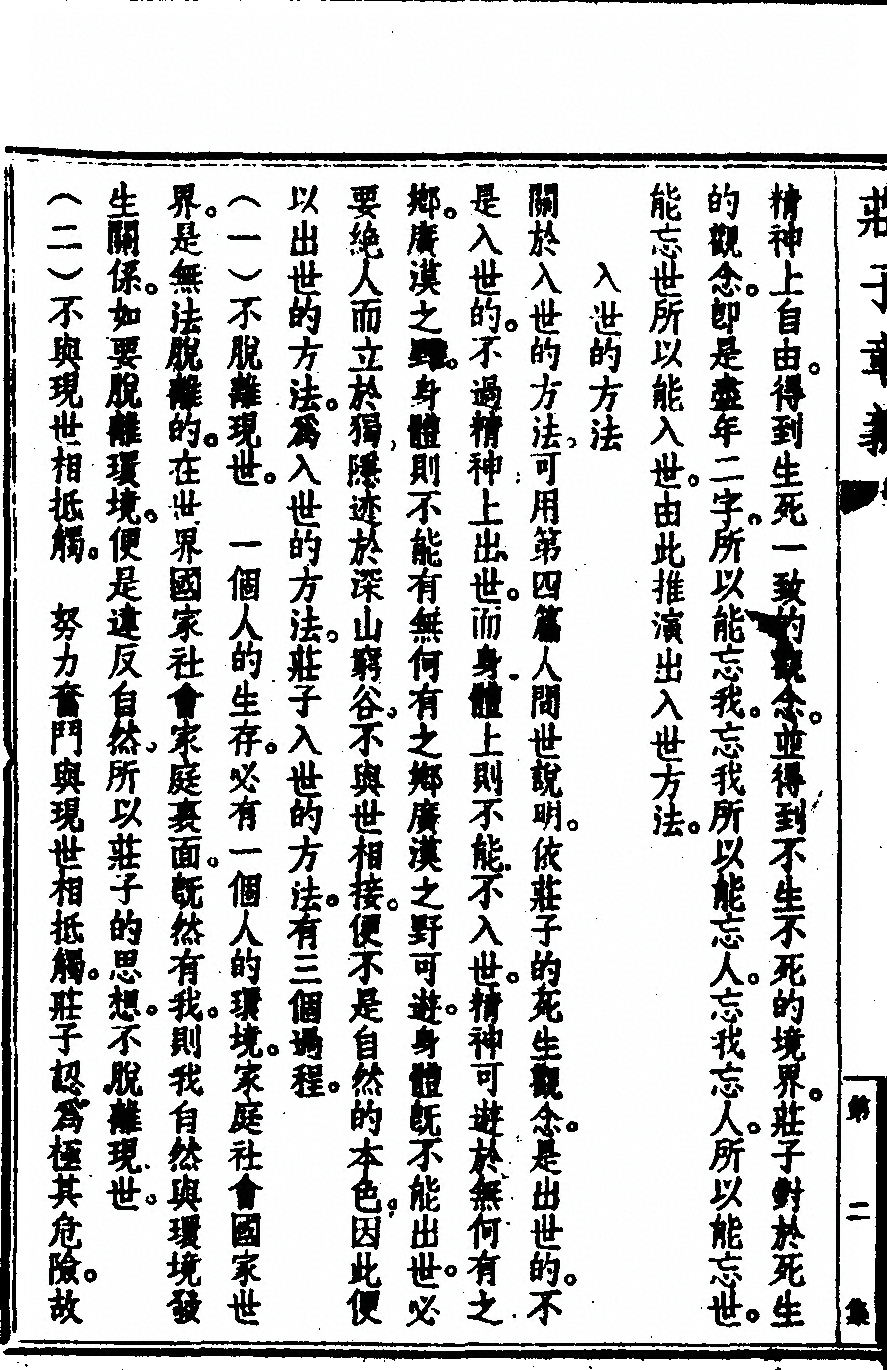 莊子章義
第二集
精神上自由。得到生死一致的觀念。並得到不生不死的境界。莊子對於死生
的觀念。卽是盡年二字。所以能忘我。忘我所以能忘人。忘我忘人。所以能忘世。
能忘世所以能入世。由此推演出入世方法。
入世的方法
關於入世的方法、可用第四篇人間世說明。依莊子的死生觀念。是出世的。不
是入世的。不過精神上出世。而身體上則不能不入世。精神可遊於無何有之
鄕。廣漠之野。身體則不能有無何有之鄕廣漠之野可遊。身體旣不能出世。必
要絕人而立於獨、隱迹於深山窮谷、不與世相接。便不是自然的本色。因此便
以出世的方法。爲入世的方法。莊子入世的方法。有三個過程。
（一）不脫離現世。　一個人的生存。必有一個人的環境。家庭社會國家世
界。是無法脫離的。在世界國家社會家庭裏面。旣然有我。則我自然與環境發
生關係。如要脫離環境。便是違反自然、所以莊子的思想。不脫離現世。
（二）不與現世相抵觸。　努力奮鬥與現世相抵觸。莊子認爲極其危險。故